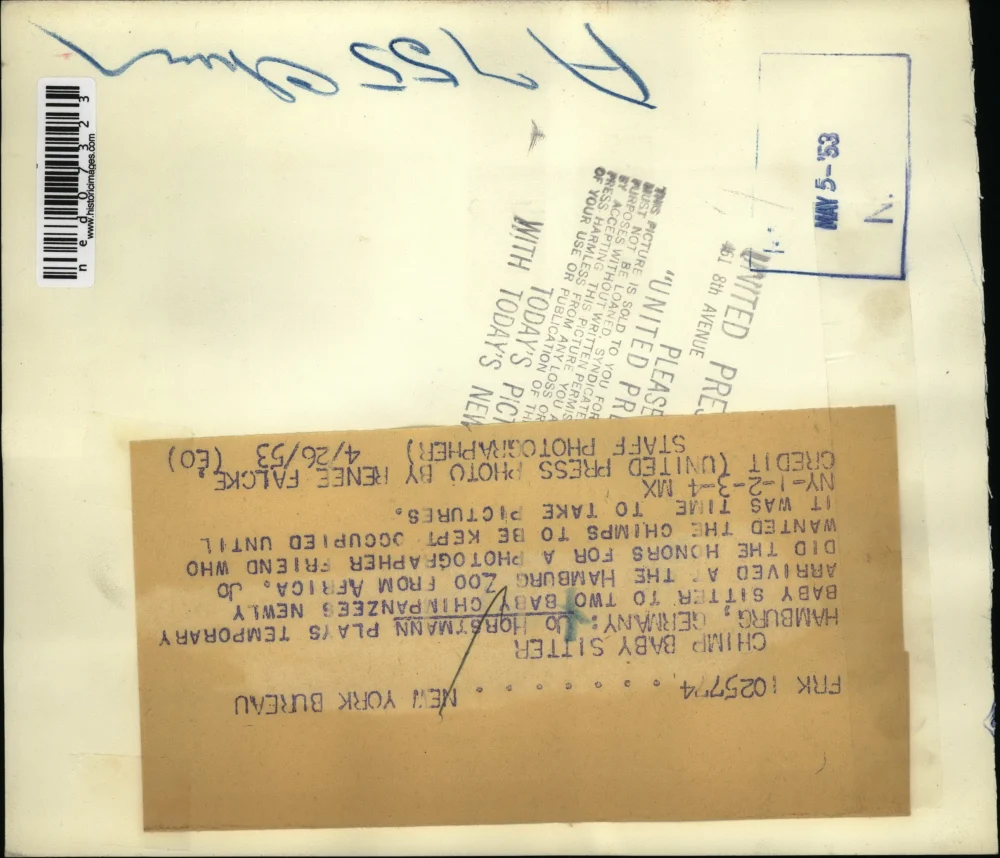 FRK 1025774 . . . . . . . . NEW YORK BUREAU
CHIMP BABY SITTER
HAMBURG, GERMANY: JO HORSTMANN PLAYS TEMPORARY
BABY SITTER TO TWO BABY CHIMPANZEES NEWLY
ARRIVED AT THE HAMBURG ZOO FROM AFRICA. JO
DID THE HONORS FOR A PHOTOGRAPHER FRIEND WHO
WANTED THE CHIMPS TO BE KEPT OCCUPIED UNTIL
IT WAS TIME TO TAKE PICTURES.
NY-1-2-3-4 MX
CREDIT (UNITED PRESS PHOTO BY RENEE FALCKE,
STAFF PHOTOGRAPHER) 4/26/53 (EO)
UNITED PRES
461 8th AVENUE
PLEASE
"UNITED PR
THIS PICTURE IS SOLD TO YOU FOR
PURPOSES
NOT BE LOANED, SYNDICATE
WITHOUT WRITTEN PERMIS
BY ACCEPTING THIS PICTURE YOU A
PRESS HARMLESS FROM ANY LOSS OR
OF YOUR USE OR PUBLICATION OF TH
WITH TODAY'S PICT
TODAY'S NEW
MAY 5-'53
N.
A 755
n e d 0 7 3 2 3
www.historicimages.com